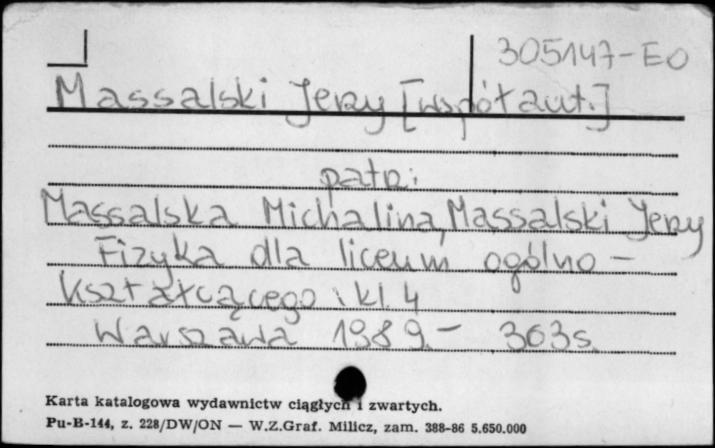 305147-EO
Massalski Jerzy [współaut.]
patrz:
Massalska Michalina, Massalski Jerzy
Fizyka dla liceum ogólno-
kształcącego : kl. 4
Warszawa 1989.- 363s.
Karta katalogowa wydawnictw ciągłych i zwartych.
Pu-B-144, z. 228/DW/ON — W.Z.Graf. Milicz, zam. 388-86 5.650.000